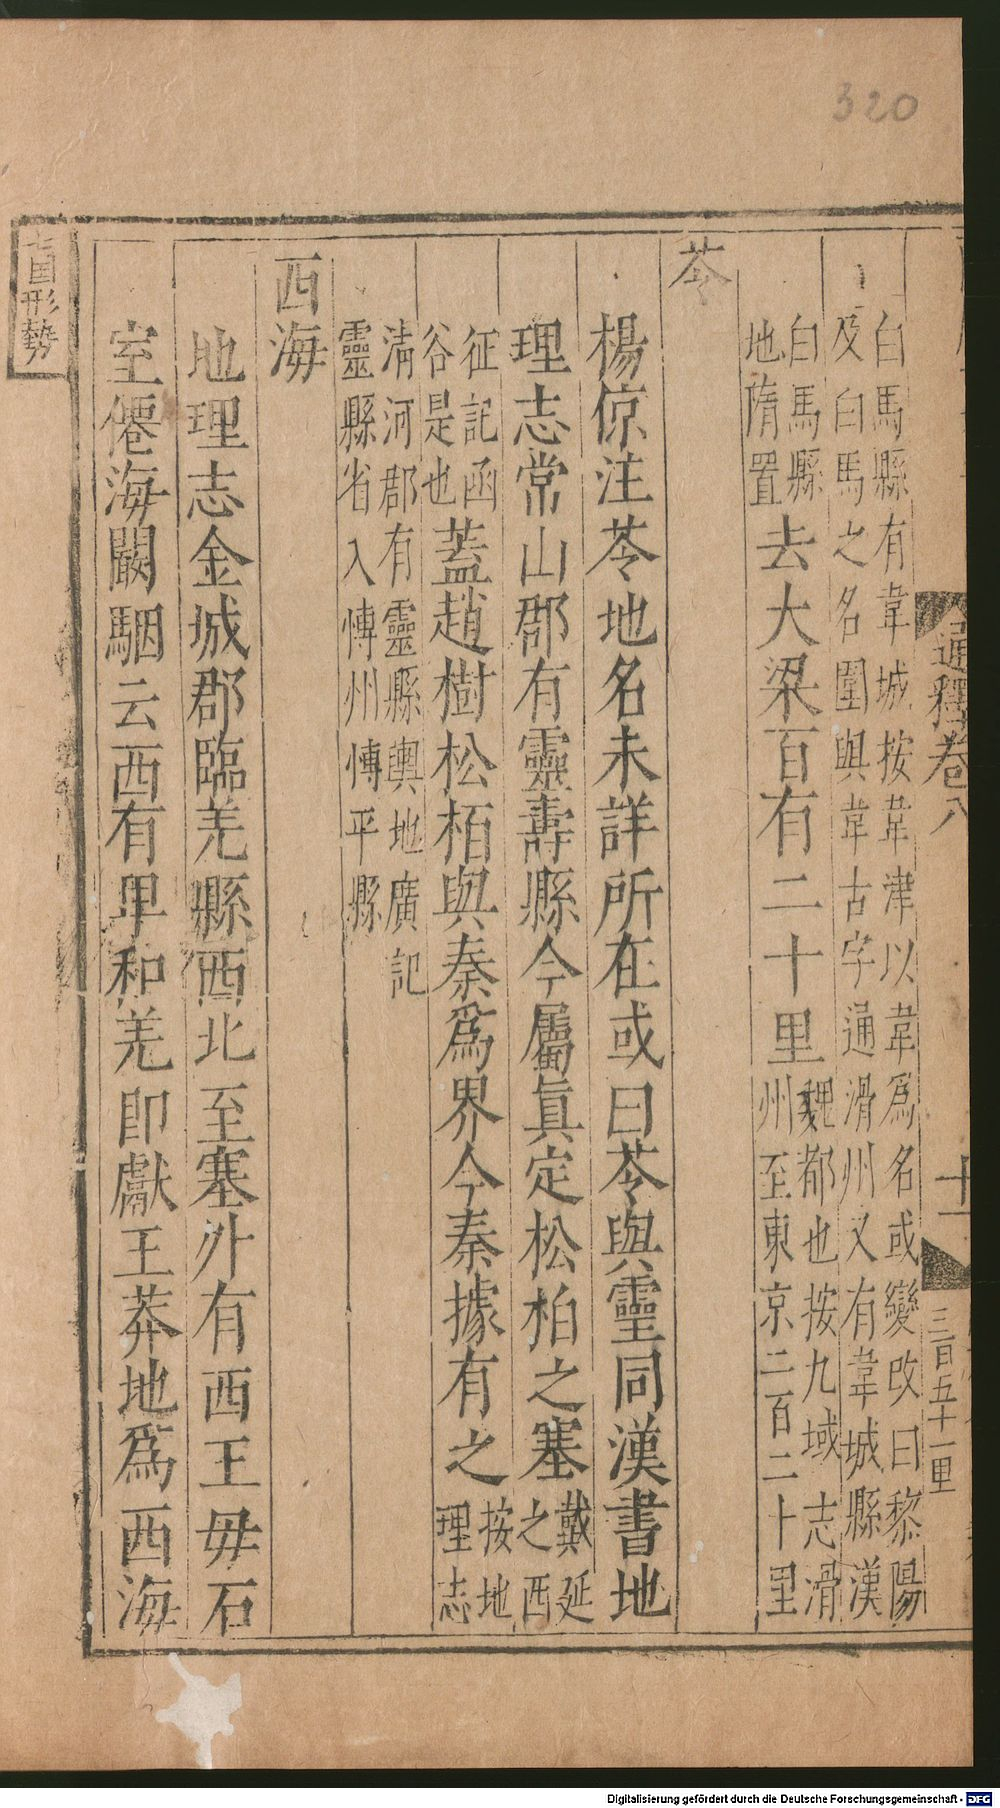 320
通釋卷八
十一
三百五十一里
白馬縣有韋城按韋津以韋爲名或變改曰黎陽
及白馬之名圍與韋古字通滑州又有韋城縣漢
白馬縣
地隋置
去大梁百有二十里
魏都也按九域志滑
州至東京二百二十里
苓
楊倞注苓地名未詳所在或曰苓與靈同漢書地
理志常山郡有靈壽縣今屬眞定松柏之塞
戴延
之西
征記函
谷是也
蓋趙樹松栢與秦爲界今秦據有之
按地
理志
清河郡有靈縣輿地廣記
靈縣省入博州博平縣
西海
地理志金城郡臨羌縣西北至塞外有西王母石
室僊海闞駰云西有卑和羌即獻王莽地爲西海
國形勢
Digitalisierung gefördert durch die Deutsche Forschungsgemeinschaft - DFG